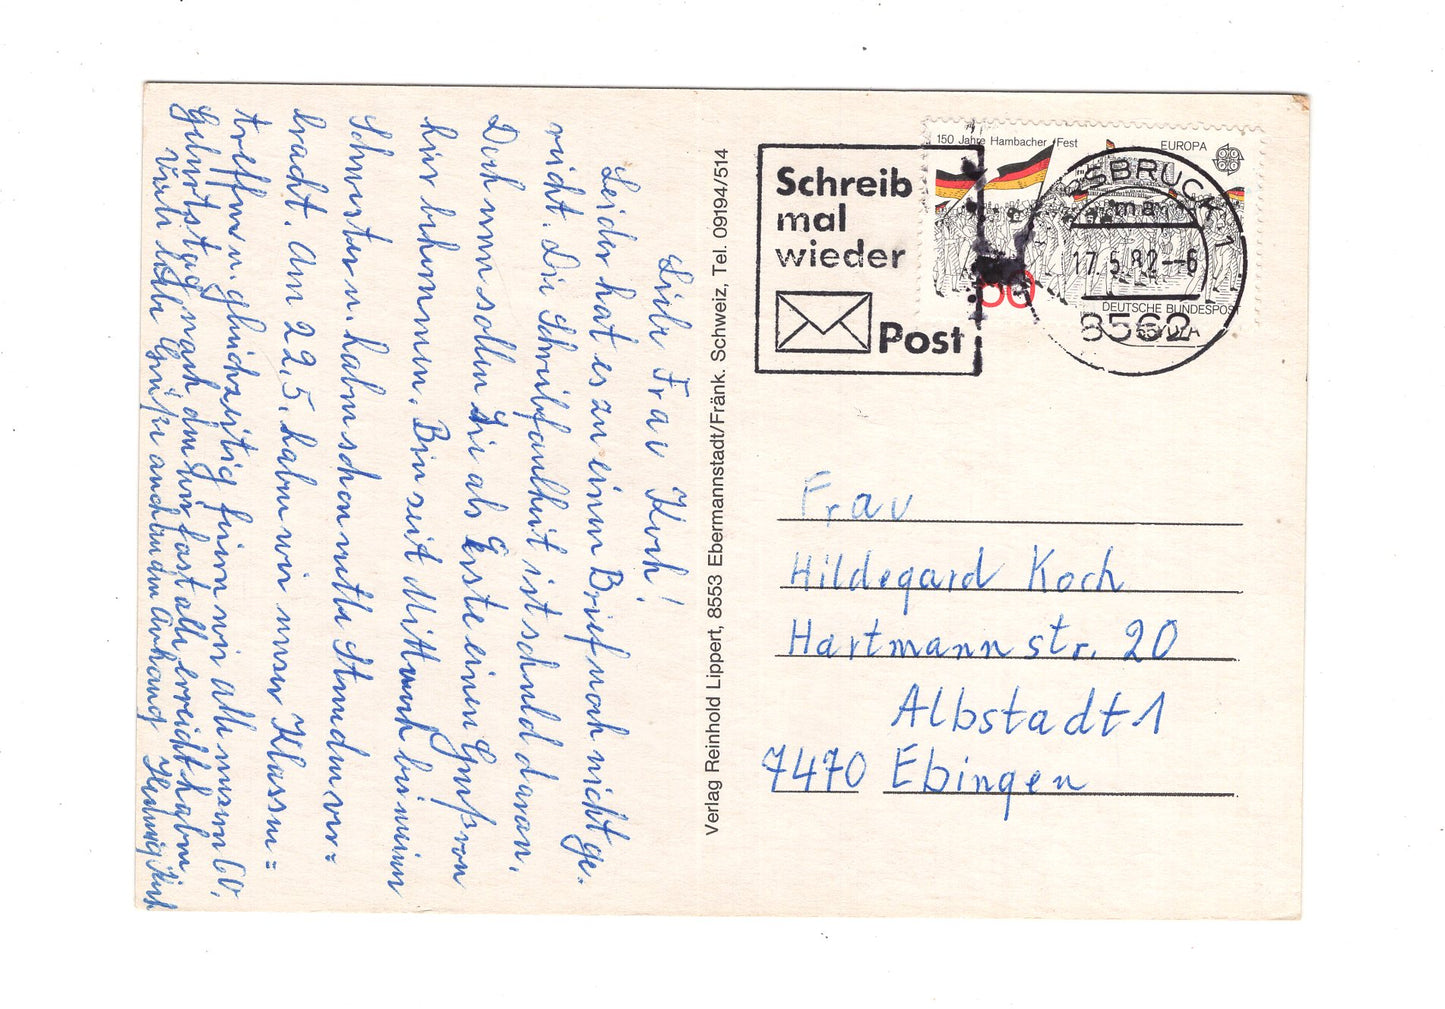 Liebe Frau Koch!
Leider hat es zu einem Brief noch nicht ge-
reicht. Die Schreibfaulheit ist schuld daran.
Doch nun sollen Sie als Erste einen Gruß von
hier bekommen. Bin seit Mittwoch bei meinen
Schwestern haben schon nette Stunden ver=
bracht. Am 22.5. haben wir unser Klassen=
treffen u. gleichzeitig feiern wir alle unsern 60.
Geburtstag nachdem ihn fast alle erreicht haben.
Viele liebe Grüße auch an den Anhang Hedwig
Verlag Reinhold Lippert, 8553 Ebermannstadt/Fränk. Schweiz, Tel. 09194/514
Schreib
mal
wieder
Post
150 Jahre Hambacher Fest
EUROPA
60
DEUTSCHE BUNDESPOST
SBRUCK 1
ma
17.5.82--6
8562
Frau
Hildegard Koch
Hartmannstr. 20
Albstadt 1
7470 Ebingen